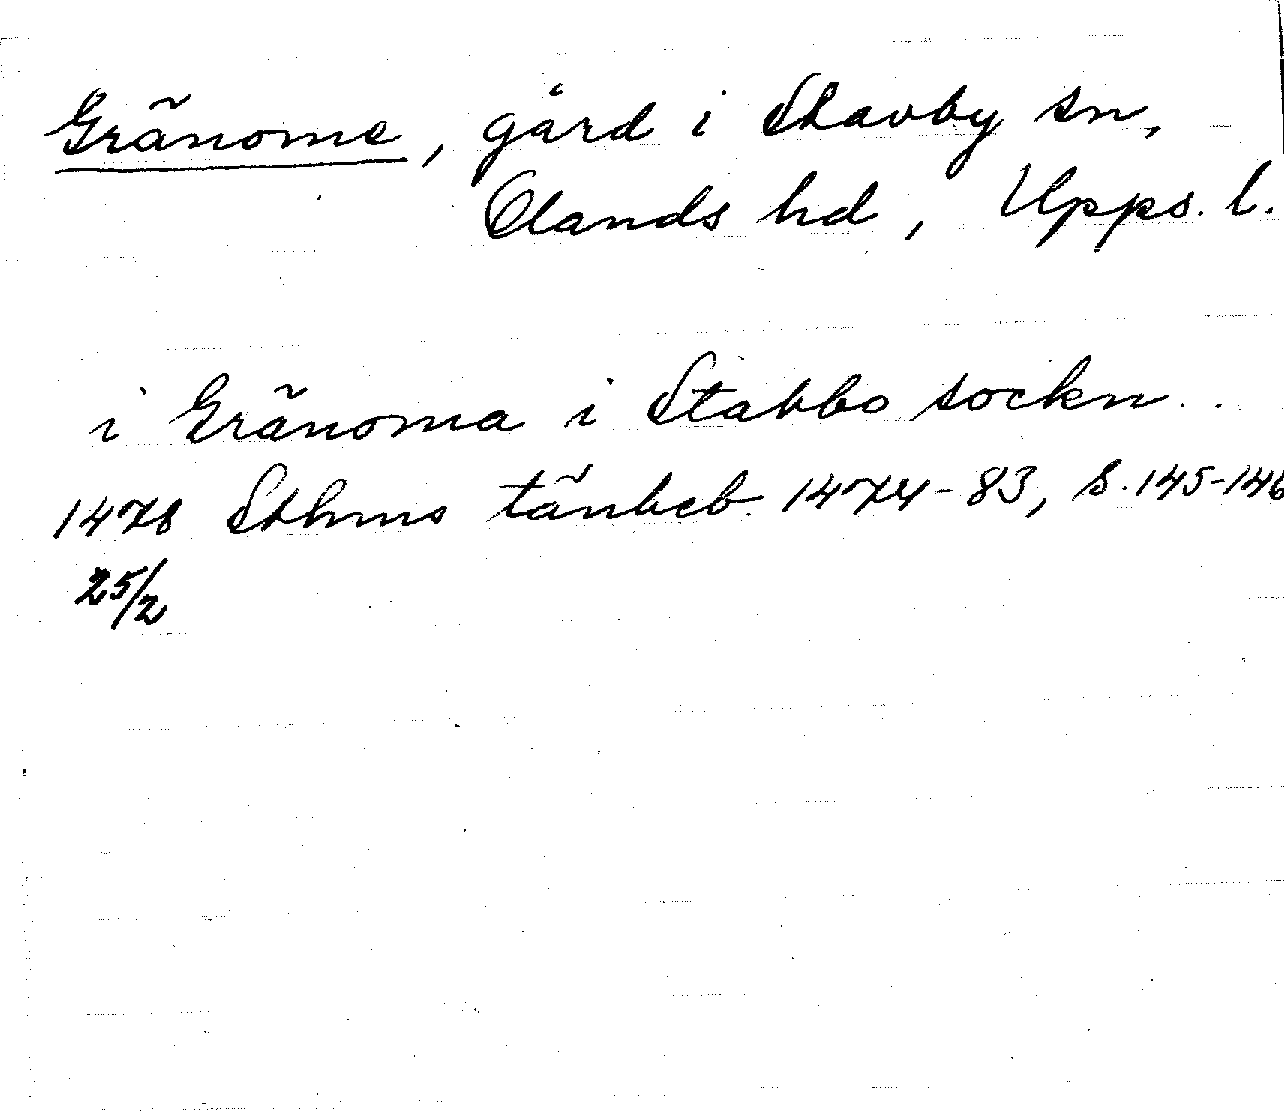 Gränome, gård i Skavby sn,
Olands hd, Upps. l.
i Gränoma i Stabbo sockn..
1478 Sthms tänkeb 1474-83, s. 145-146
25/2